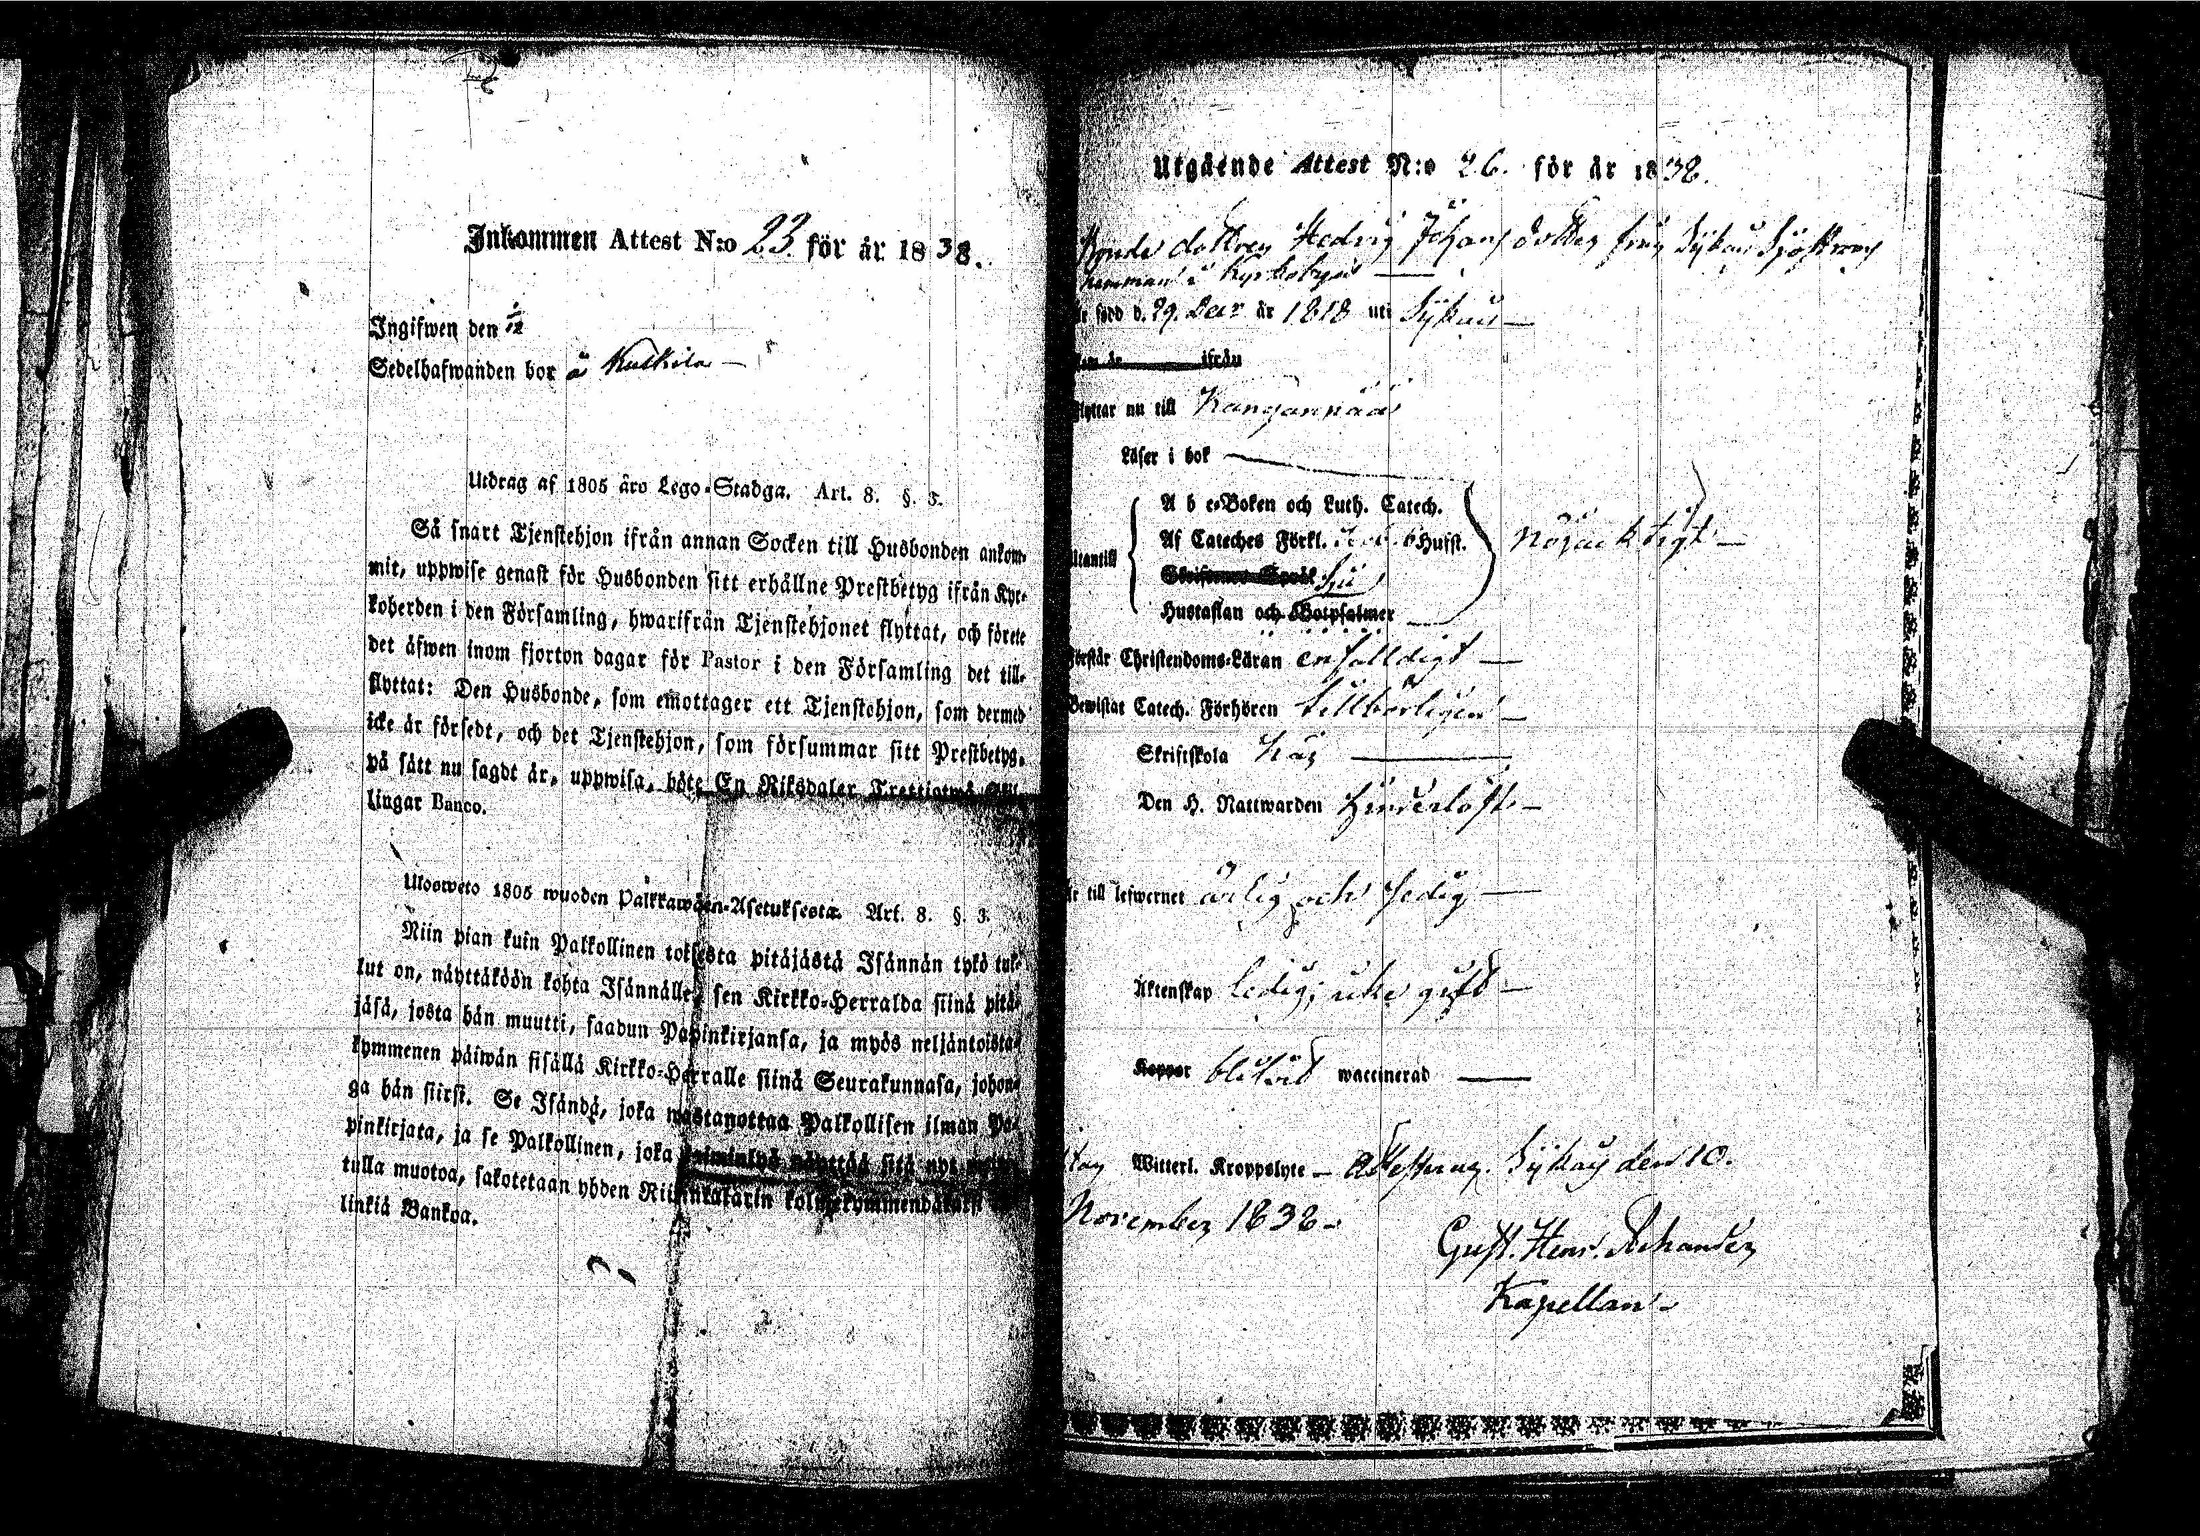 Inkommen Attest N:o 23. för år 1838.
Ingifwen den
Sedelhafwanden bor å Kulkila
Utdrag af 1805 års Lego-Stadga. Art. 8. §. 3.
Så snart Tjenstehjon ifrån annan Socken till Husbonden ankom-
mit, uppwise genast för Husbonden sitt erhållne Prestbetyg ifrån Kyr-
koherden i den Församling, hwarifrån Tjenstehjonet flyttat, och förete
det äfwen inom fjorton dagar för Pastor i den Församling det till-
flyttat: Den Husbonde, som emottager ett Tjenstehjon, som dermed
icke är försedt, och det Tjenstehjon, som försummar sitt Prestbetyg,
på sätt nu sagdt är, uppwisa, böte En Riksdaler Trettiotwå Skil-
lingar Banco.
Ulosweto 1805 wuoden Palkkawäen-Asetuksesta. Art. 8. §. 3.
Niin pian kuin Palkollinen toisesta pitäjästä Isännän tykö tul-
lut on, näyttäköön kohta Isännälle, sen Kirkko-Herralda siinä pitä-
jäsä, josta hän muutti, saadun Papinkirjansa, ja myös neljäntoista-
kymmenen päiwän sisällä Kirkko-Herralle siinä Seurakunnasa, johon-
ga hän siirsi. Se Isändä, joka wastanottaa Palkollisen ilman Pa-
pinkirjata, ja se Palkollinen, joka laiminlyö näyttää sitä nyt
tulla muotoa, sakotetaan yhden Riikinkalarin
linkiä Bankoa.
Utgående Attest N:o 26. för år 1838.
Bonde dottren Hedvig Johans dotter från Sjöstrand
hemman i Kyrkobyn
är född d. 29. Decr år 1818 uti
ifrån
Flyttar nu till Kangannää
Läser i bok
A b c-Boken och Luth. Catech.
Utantill Af Cateches Förkl. Husf. nöjacktigt
Skriftenes Språk
Hustaflan och Botpsalmer
Förstår Christendoms-Läran enfalldigt
Bewistat Catech. Förhören tillbörligen
Skriftskola
Den H. Nattwarden Hinderlöst
Är till lefwernet ärlig och sedig
Äktenskap ledig; icke gift
Koppor wattinerad
Witterl. Kroppslyte Attesteras. den 10.
November 1838
Gust. Henr.
Kapellan